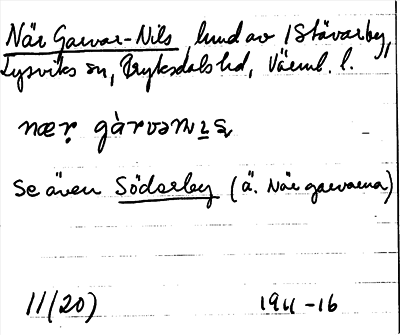 När Garvar-Nils, hmd av 1 Stävarby,
Lysviks sn, Fryksdals hd, Värml. l.
Se även Söderby (ä. När garvarna)
11(20) 1911-16